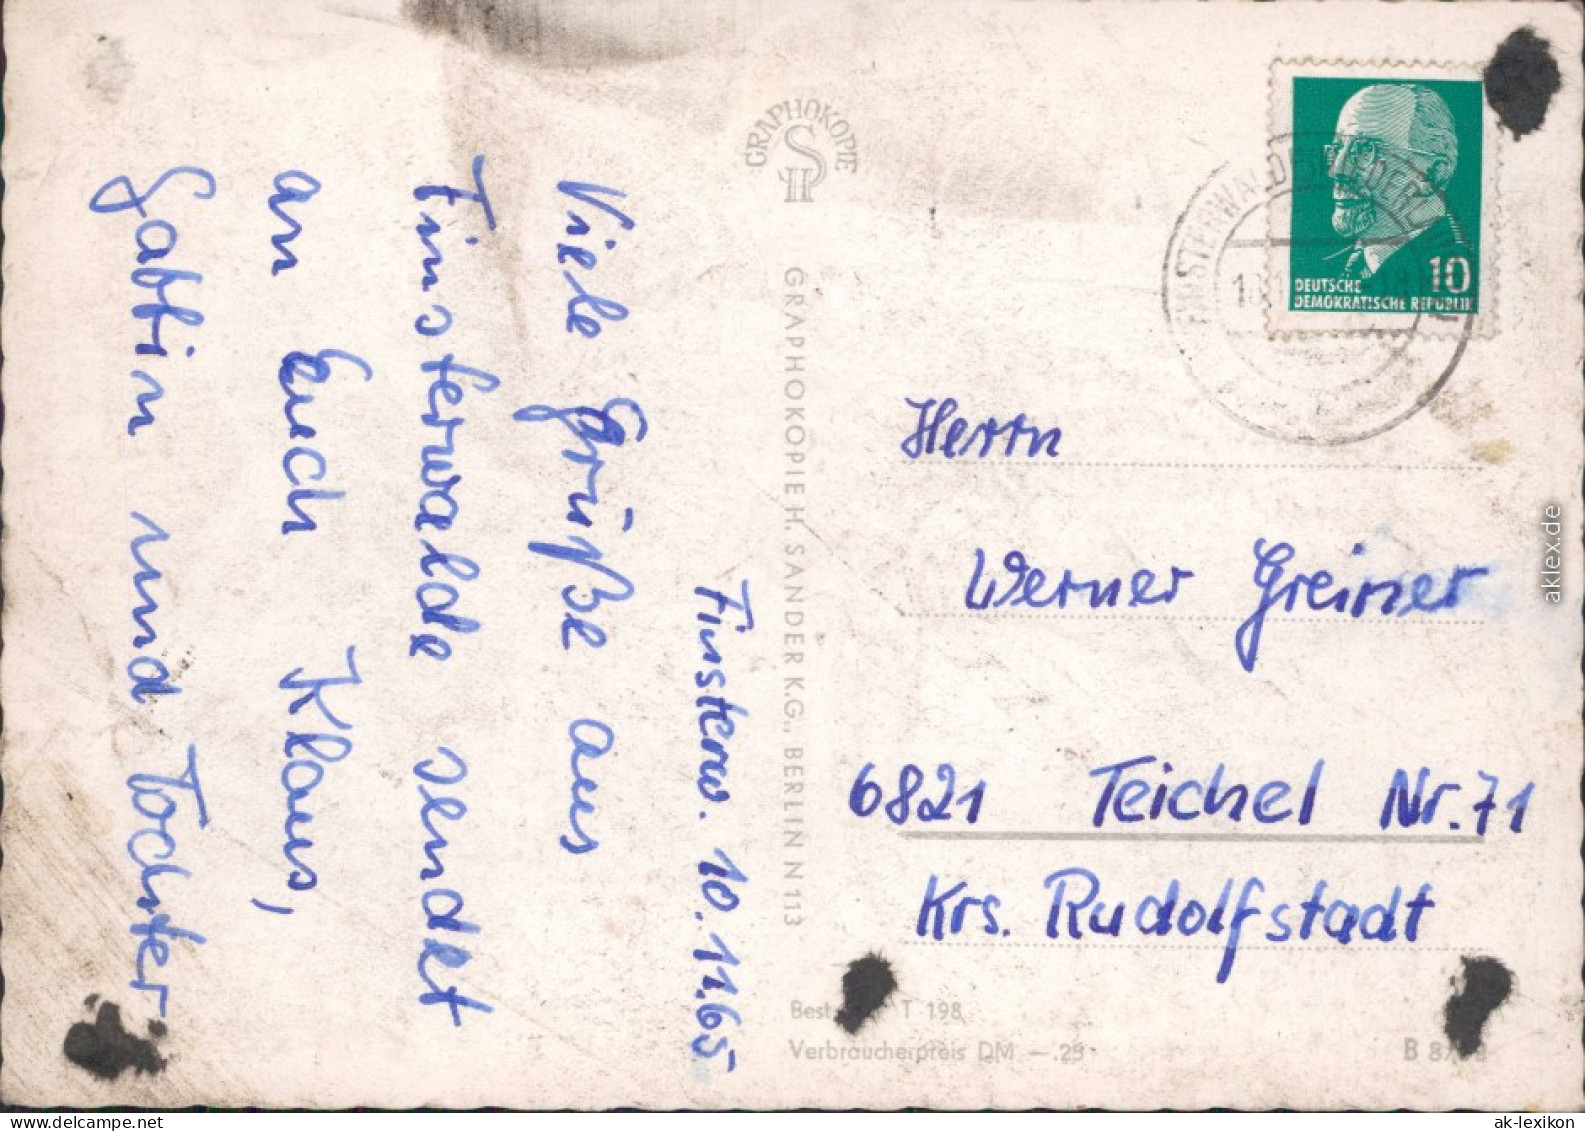 Finsterw. 10.11.65
Viele Grüße aus
Finsterwalde sendet
an Euch Klaus,
Gattin und Tochter
GRAPHOKOPIE
H S
GRAPHOKOPIE H. SANDER K.G., BERLIN N 113
DEUTSCHE
DEMOKRATISCHE REPUBLIK
10
FINSTERWALDE
Herrn
Werner Greiner
6821 Teichel Nr. 71
Krs. Rudolfstadt
Best. T 198
Verbraucherpreis DM —.25
aklex.de
delcampe.net
ak-lexikon